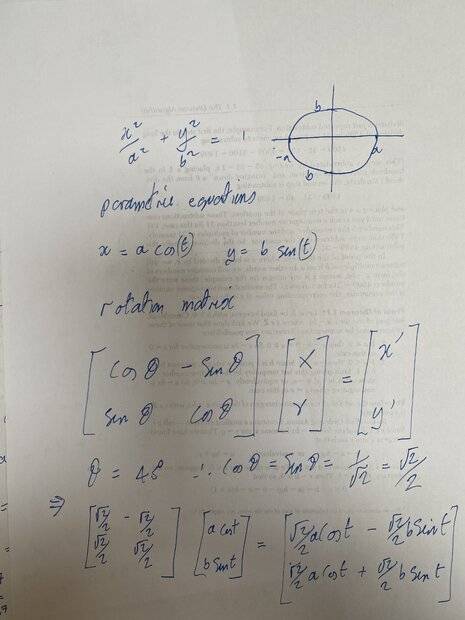 x²/a² + y²/b² = 1
b
-a a
b
parametric equations
x = a cos(t) y = b sin(t)
rotation matrix
[cos θ - sin θ; sin θ cos θ] [x; y] = [x'; y']
θ = 45 ∴ cos θ = sin θ = 1/√2 = √2/2
⇒ [√2/2 - √2/2; √2/2 √2/2] [a cos t; b sin t] = [√2/2 a cos t - √2/2 b sin t; √2/2 a cos t + √2/2 b sin t]